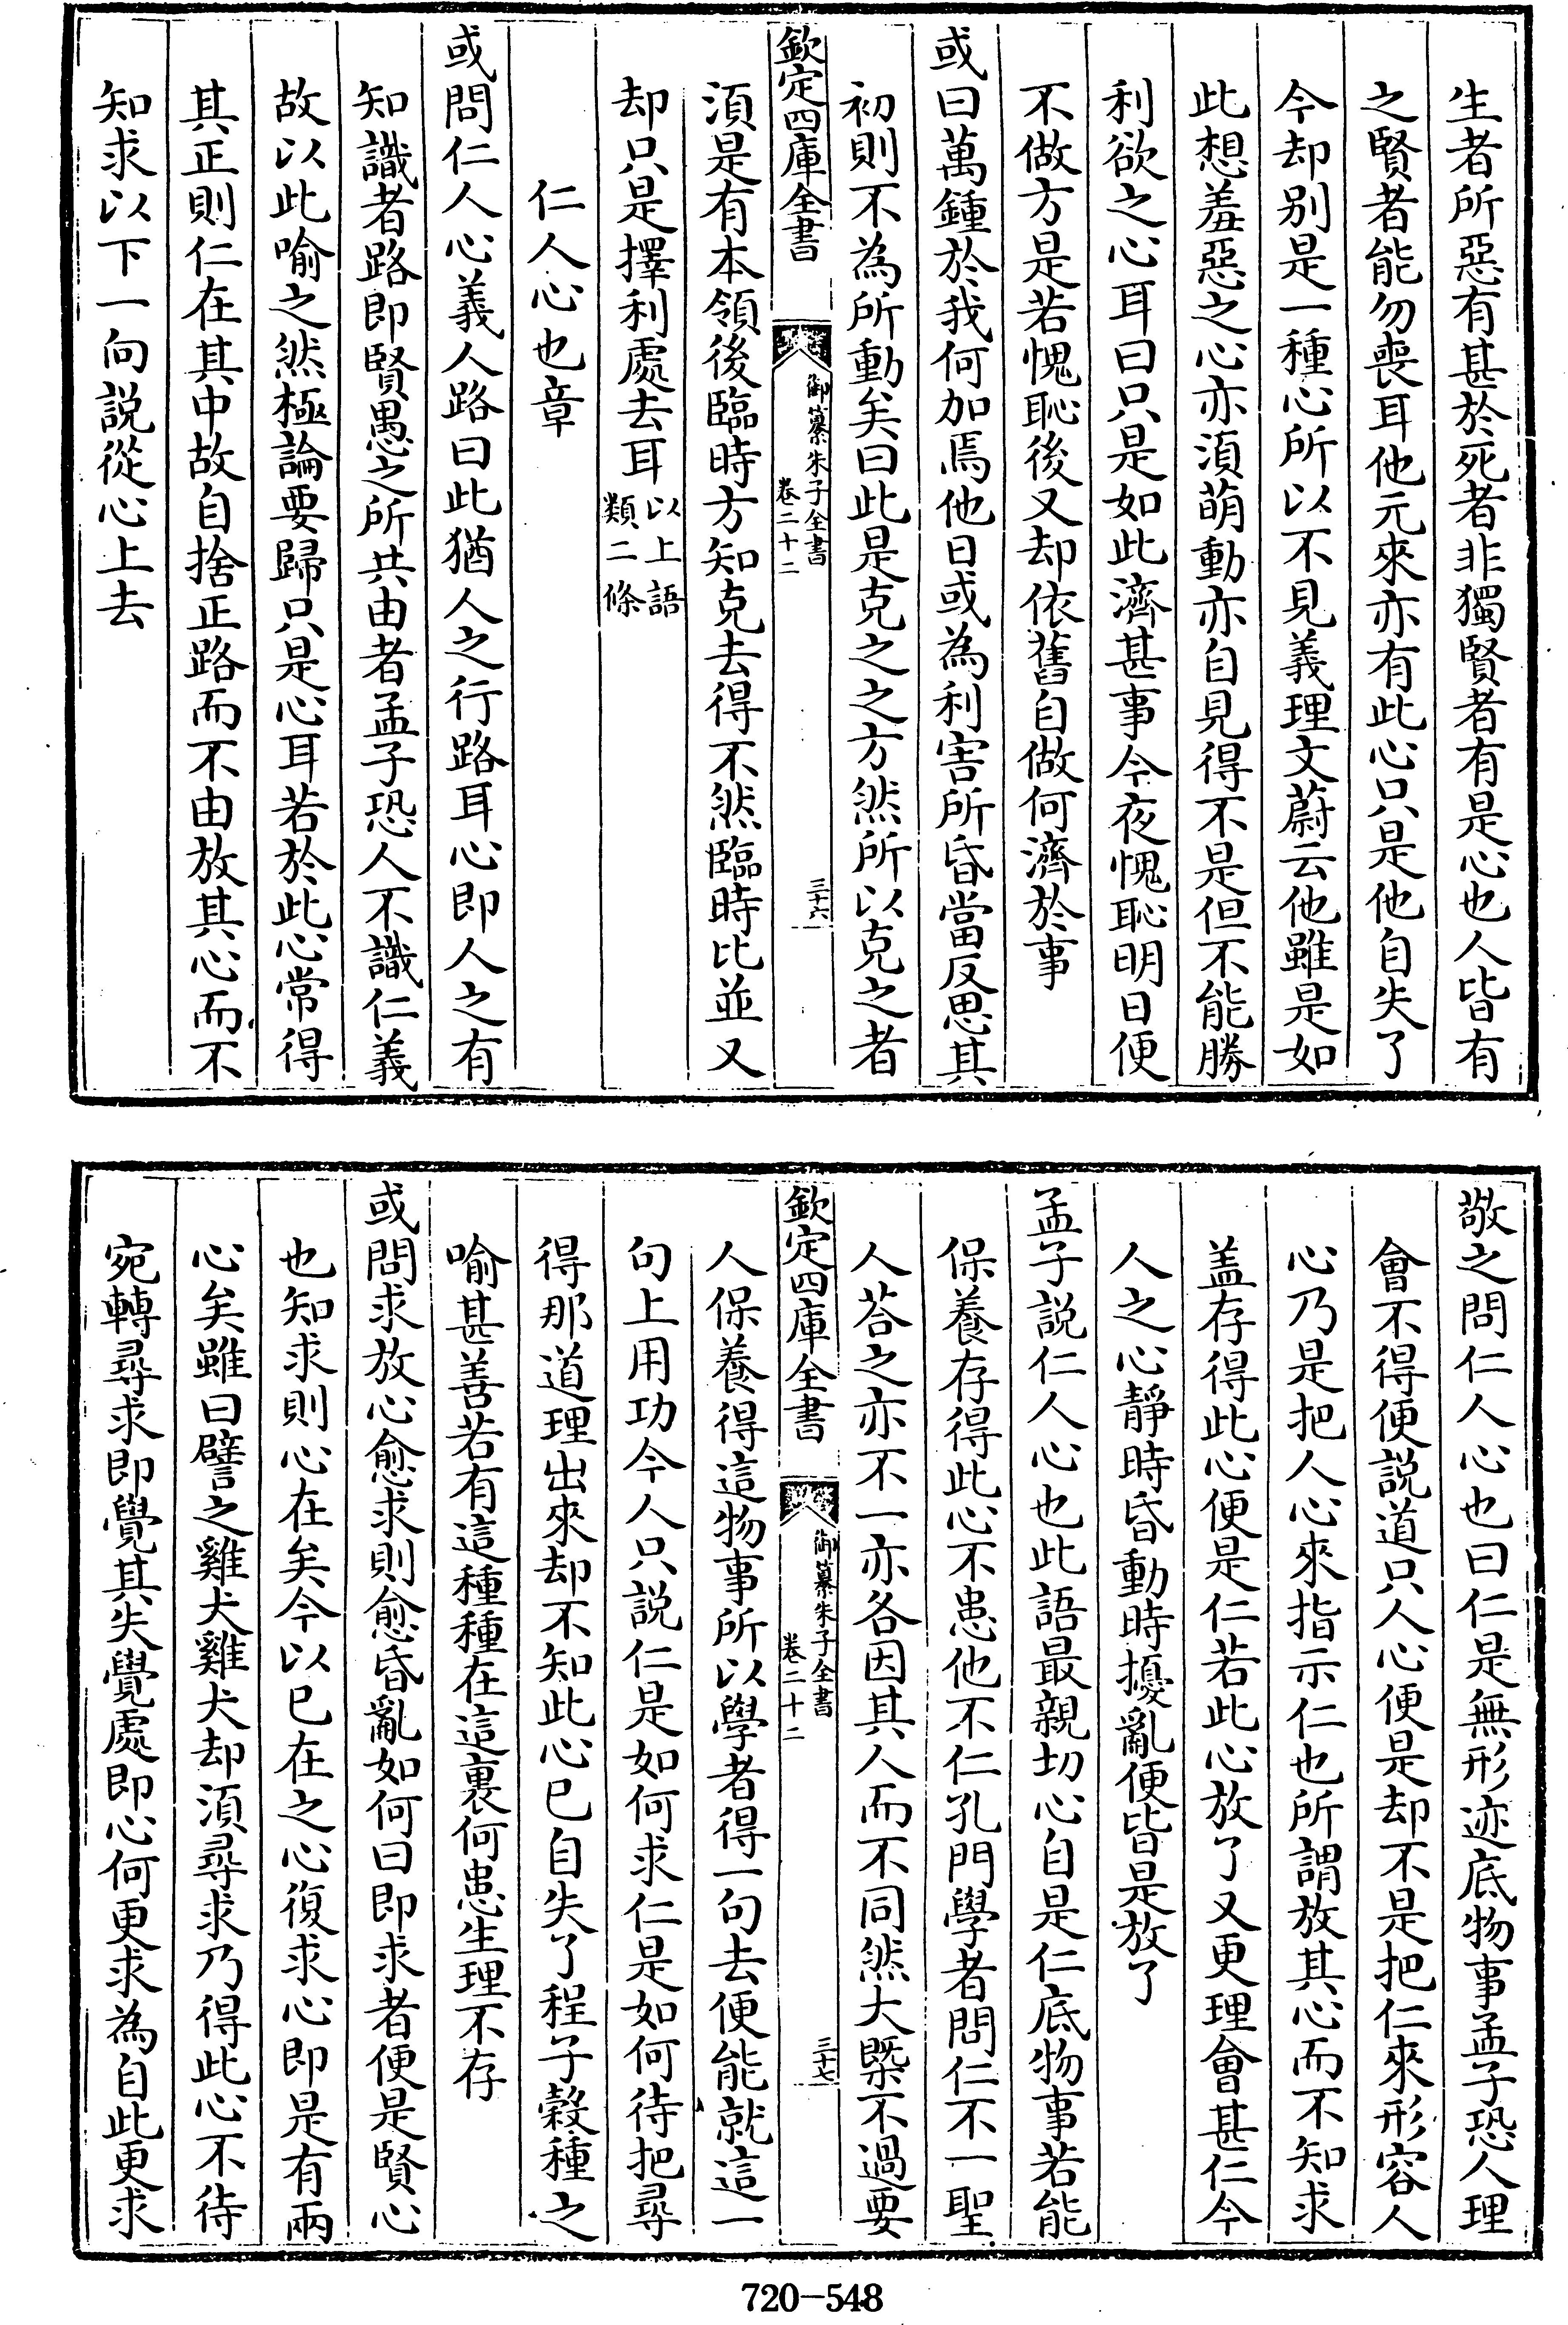 生者所惡有甚於死者非獨賢者有是心也人皆有
之賢者能勿喪耳他元來亦有此心只是他自失了
今却别是一種心所以不見義理文蔚云他雖是如
此想羞惡之心亦須萌動亦自見得不是但不能勝
利欲之心耳曰只是如此濟甚事今夜愧恥明日便
不做方是若愧恥後又却依舊自做何濟於事
或曰萬鍾於我何加焉他日或為利害所昏當反思其
初則不為所動矣曰此是克之之方然所以克之者
欽定四庫全書
御纂朱子全書
卷二十二
三十六
須是有本領後臨時方知克去得不然臨時比並又
却只是擇利處去耳以上語類二條
仁人心也章
或問仁人心義人路曰此猶人之行路耳心即人之有
知識者路即賢愚之所共由者孟子恐人不識仁義
故以此喻之然極論要歸只是心耳若於此心常得
其正則仁在其中故自捨正路而不由放其心而不
知求以下一向説從心上去
敬之問仁人心也曰仁是無形迹底物事孟子恐人理
會不得便説道只人心便是却不是把仁來形容人
心乃是把人心來指示仁也所謂放其心而不知求
盖存得此心便是仁若此心放了又更理會甚仁今
人之心靜時昏動時擾亂便皆是放了
孟子説仁人心也此語最親切心自是仁底物事若能
保養存得此心不患他不仁孔門學者問仁不一聖
人荅之亦不一亦各因其人而不同然大槩不過要
欽定四庫全書
御纂朱子全書
卷二十二
三十七
人保養得這物事所以學者得一句去便能就這一
句上用功今人只説仁是如何求仁是如何待把尋
得那道理出來却不知此心已自失了程子穀種之
喻甚善若有這種種在這裏何患生理不存
或問求放心愈求則愈昏亂如何曰即求者便是賢心
也知求則心在矣今以已在之心復求心即是有兩
心矣雖曰譬之雞犬雞犬却須尋求乃得此心不待
宛轉尋求即覺其失覺處即心何更求為自此更求
720-548